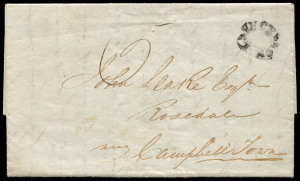 2
John Leake Esqr
Rosedale
near Campbell Town